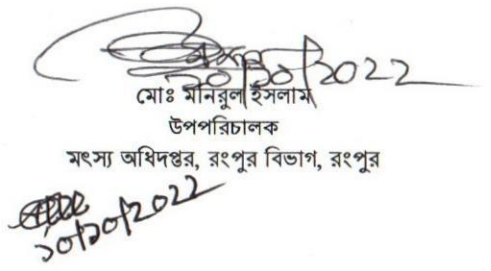 ১০/১০/2022
মোঃ মনিরুল ইসলাম
উপপরিচালক
মৎস্য অধিদপ্তর, রংপুর বিভাগ, রংপুর
১০/১০/2022